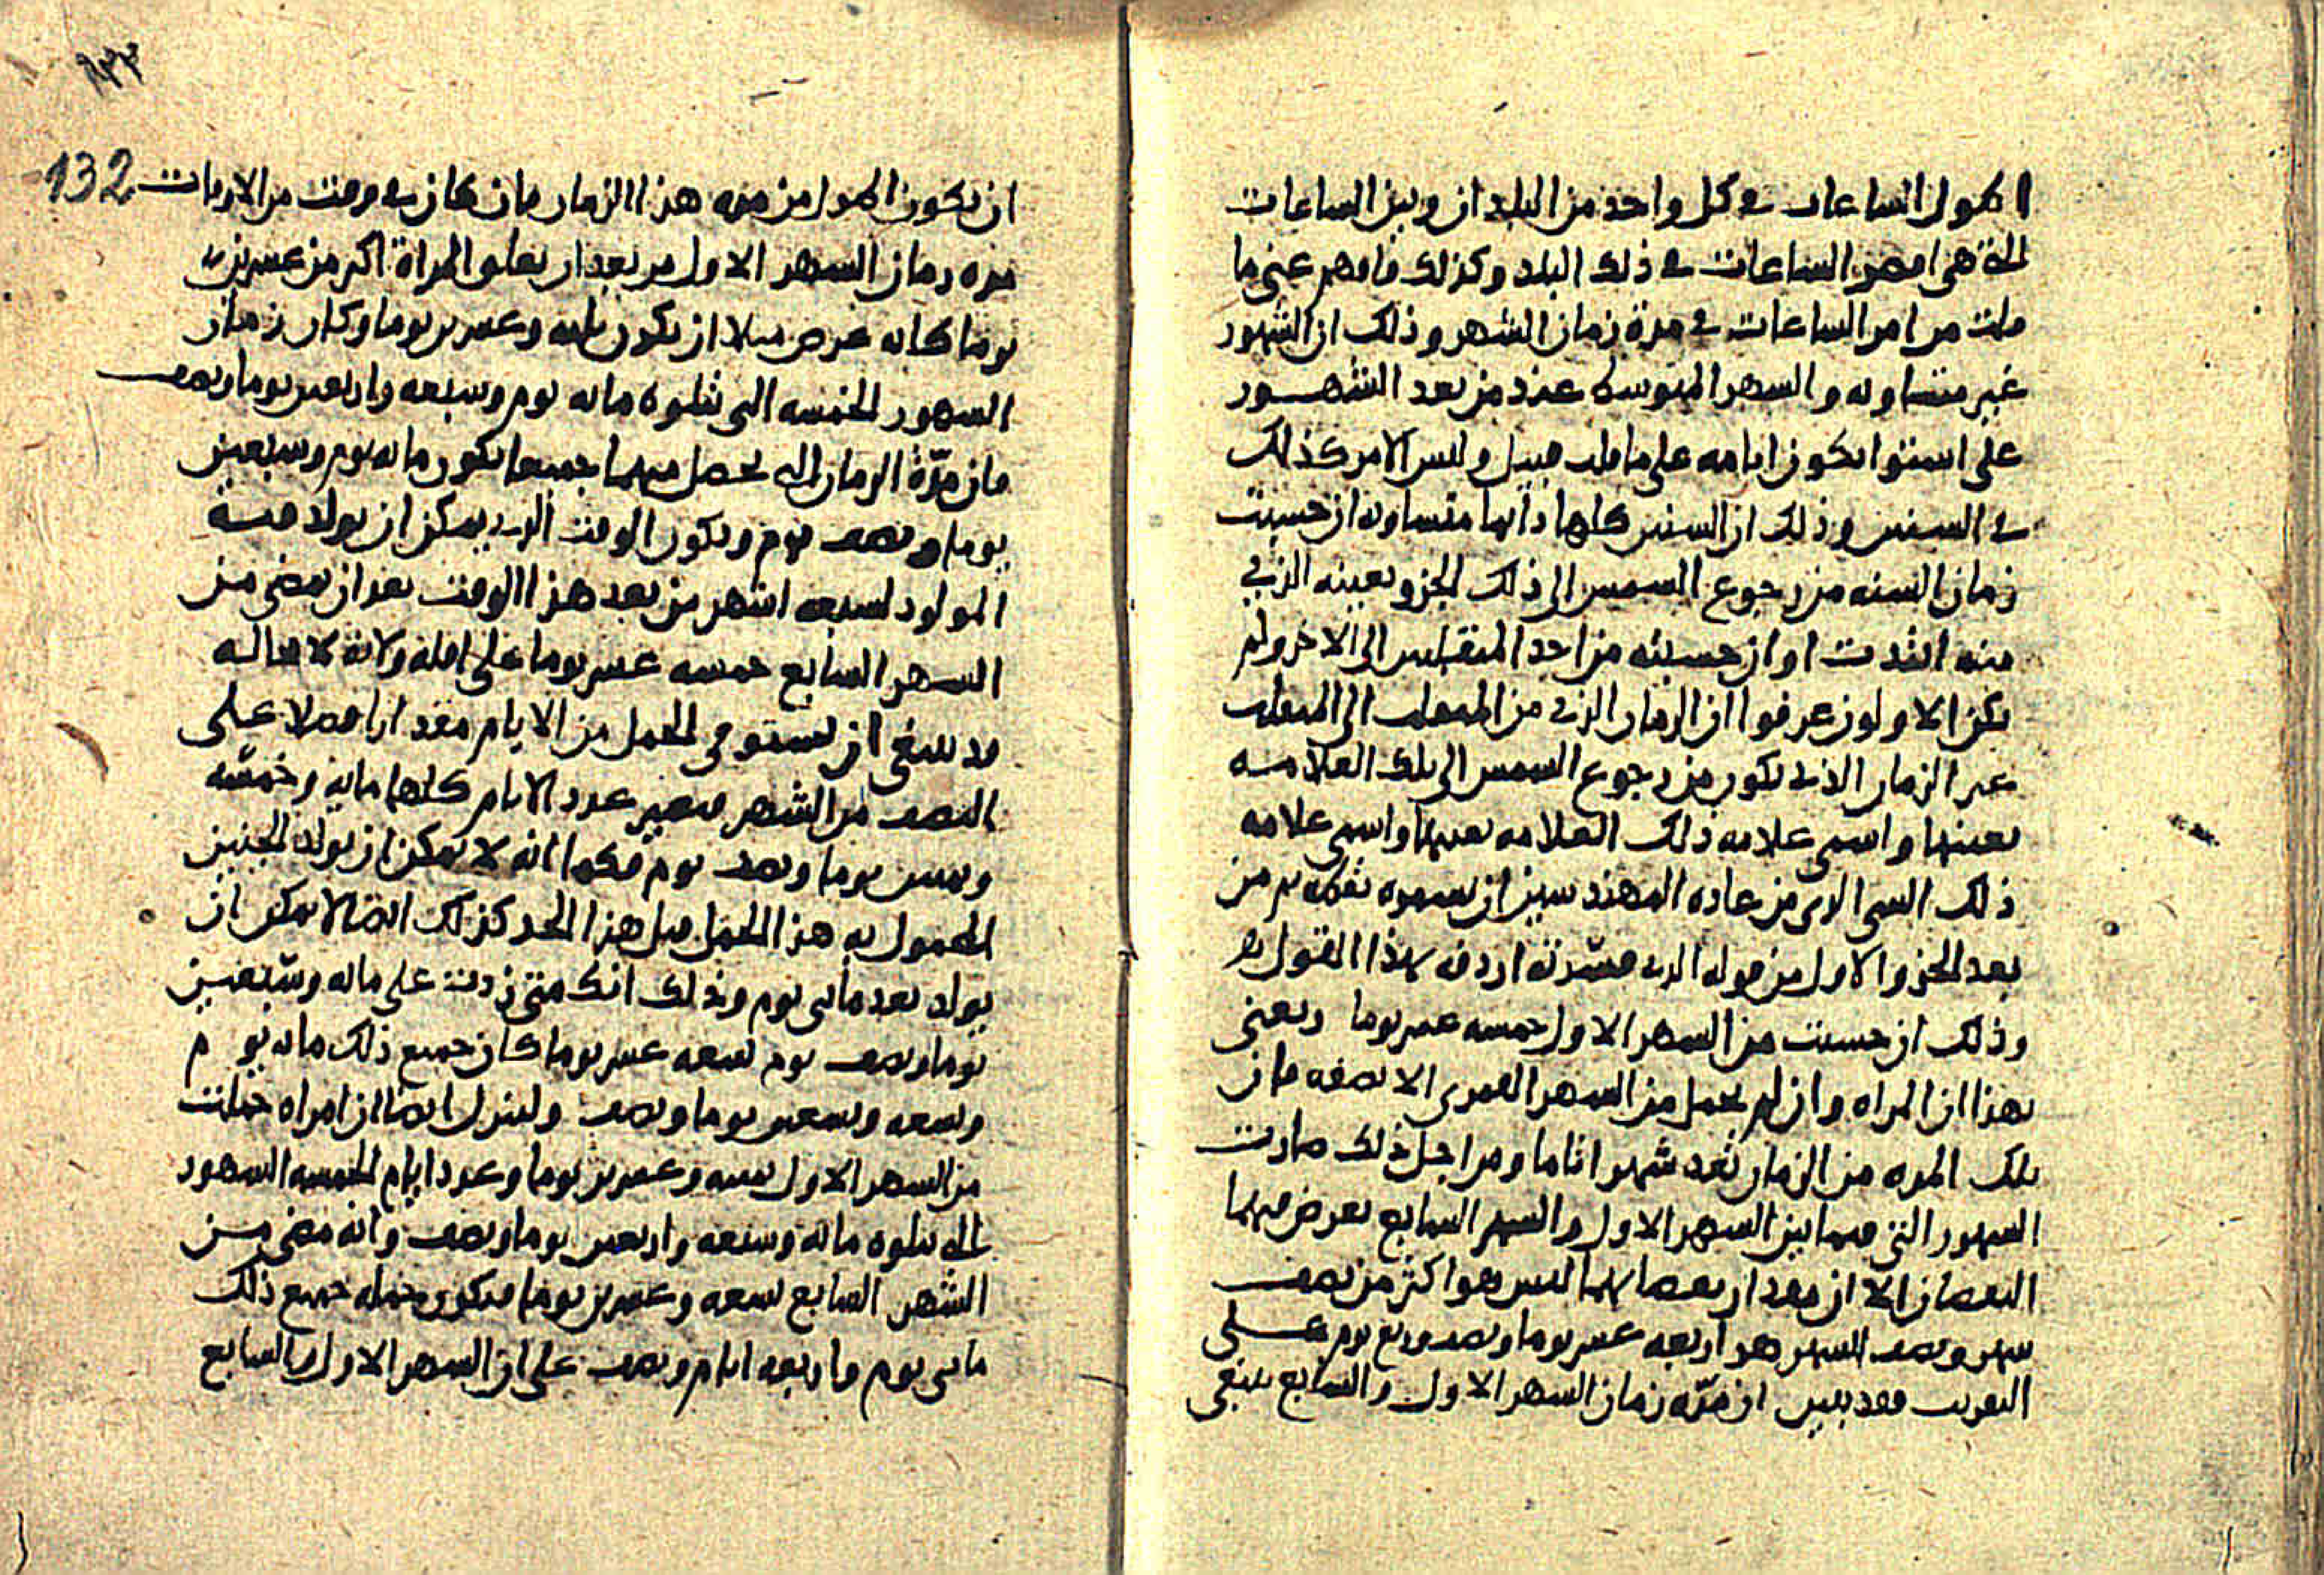 اطول الساعات في كل واحد من البلدان وبين الساعات
التي هي اقصر الساعات في ذلك البلد وكذلك فافهم عني ما
قلت من امر الساعات في مدة زمان الشهر وذلك ان الشهور
غير متساويه والشهر المتوسط عند من يعد الشهور
على استوا يكون ايامه على ما قلت قبيل وليس الامر كذلك
في السنين وذلك ان السنين كلها دايما متساويه ان حسبت
زمان السنه من رجوع الشمس الى ذلك الجزو بعينه الذي
منه ابتدت او ان حسبته من احد المنقلبين الى الاخر ولم
يكن الاولون عرفوا ان الزمان الذي من المنقلب الى المنقلب
غير الزمان الذي يكون من رجوع الشمس الى تلك العلامه
بعينها واسمي علامه ذلك العلامه بعينها واسمي علامه
ذلك الشي الذي من عاده المهندسين ان يسموه نقطه ثم من
بعد الجزو الاول من قوله الذي فسرته اردفه بهذا القول
وذلك ان حسبت من الشهر الاول خمسه عشر يوما ويعني
بهذا ان المراه وان لم تحمل من الشهر القمري الا نصفه فان
تلك المده من الزمان تعد شهرا تاما ومن اجل ذلك صارت
الشهور التي فيما بين الشهر الاول والشهر السابع يعرض فيهما
النقصان الا ان مقدار نقصانهما ليس هو اكثر من نصف
شهر ونصف الشهر هو اربعه عشر يوما ونصف وربع يوم على
التقريب فقد تبين ان مدّه زمان الشهر الاول والسابع ينبغي
132
ان يكون اطول من مده هذا الزمان فان كان في وقت من الاوقات
مده زمان الشهر الاول من بعد ان تعلق المراة اكثر من عشرين
يوما كانه عرض مثلا ان يكون ثلثه وعشرين يوما وكان زمان
الشهور الخمسه التي تتلوه مايه يوم وسبعه واربعين يوما ونصف
فان مدّة الزمان التي تحصل منهما جميعا يكون مايه يوم وسبعين
يوما ونصف يوم ويكون الوقت الذي يمكن ان يولد فيه
المولود لسبعه اشهر من بعد هذا الوقت بعد ان يمضي من
الشهر السابع خمسه عشر يوما على اقله ولانه لا محاله
قد ينبغي ان يستوفي الحمل من الايام مقدارا فضلا على
النصف من الشهر فيصير عدد الايام كلها مايه وخمسه
وثمنين يوما ونصف يوم فكما انه لا يمكن ان يولد الجنين
المحمول به هذا الحمل قبل هذا الحد كذلك ايضا لا يمكن ان
يولد بعد مايتي يوم وذلك انك متى زدت على مايه وسبعين
يوما ونصف يوم تسعه عشر يوما كان جميع ذلك مايه يوم
وتسعه وثمنين يوما ونصف ولينزل ايضا ان امراه حملت
من الشهر الاول سته وعشرين يوما وعدد ايام الخمسه الشهور
التي تتلوه مايه وسبعه واربعين يوما ونصف وانه مضى من
الشهر السابع تسعه وعشرين يوما فيكون جمله جميع ذلك
مايتي يوم واربعه ايام ونصف على ان الشهر الاول والسابع